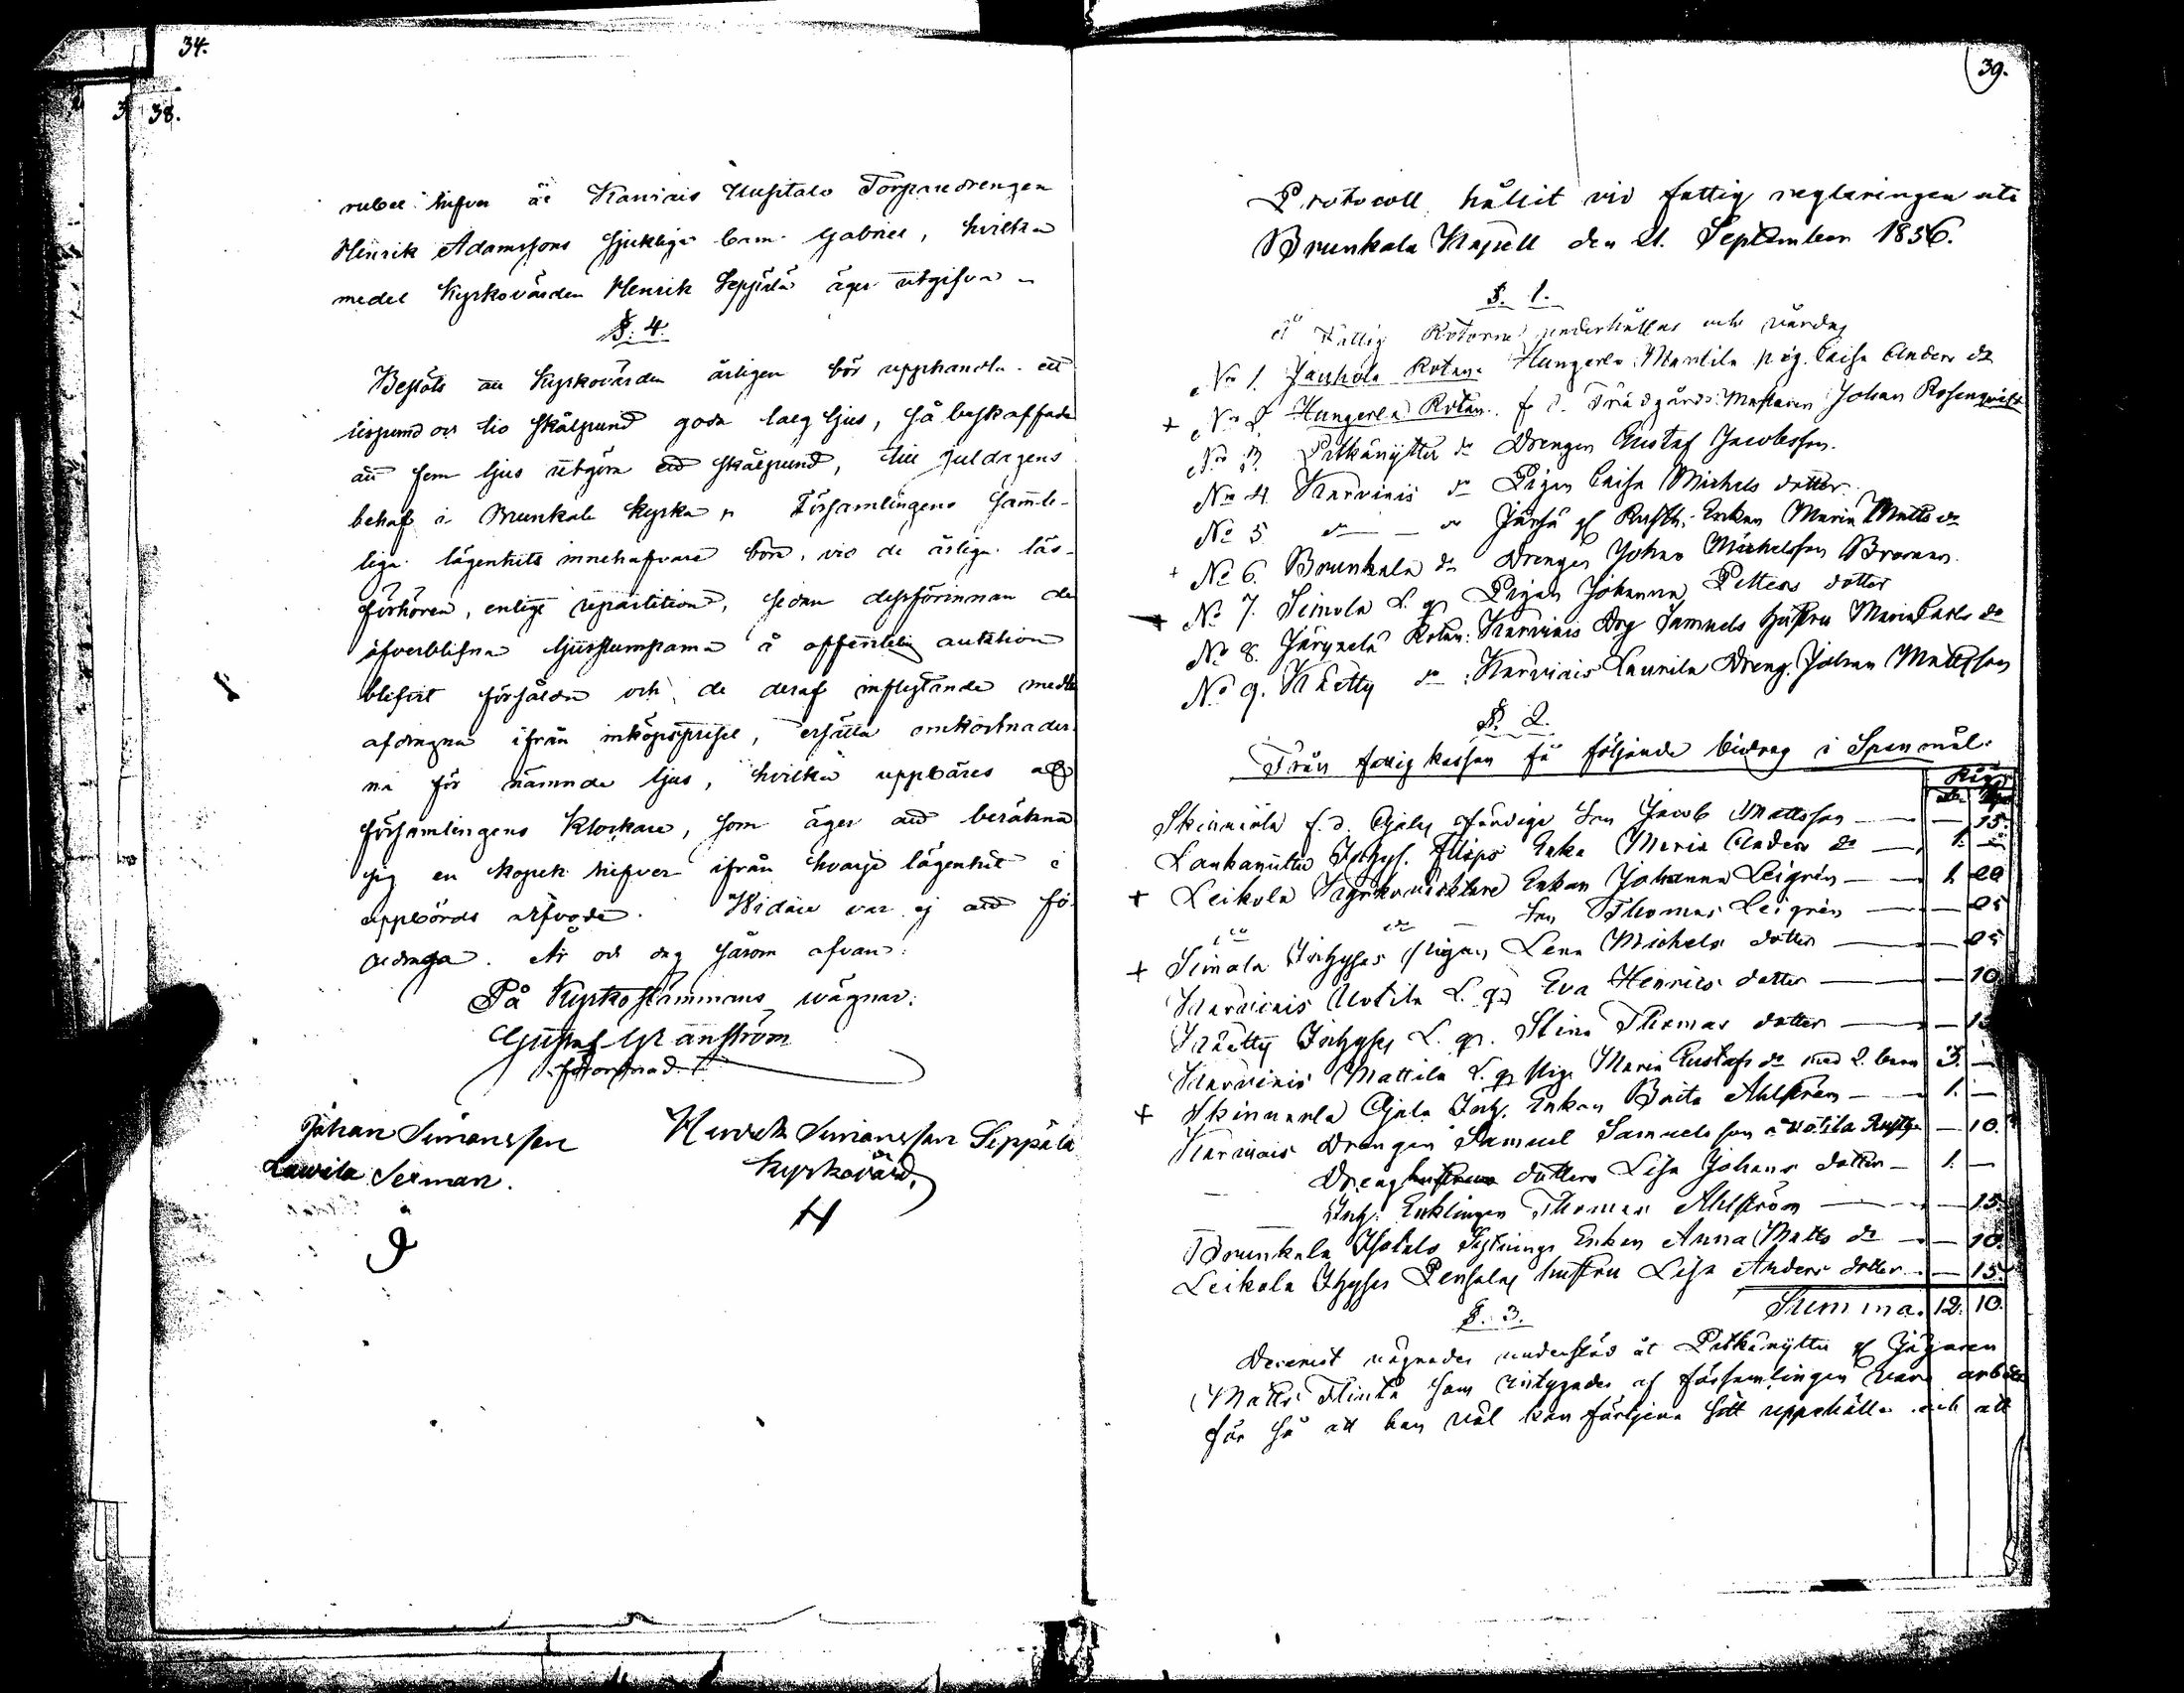 34.
38.
rubel silfver åt Karviais Uusitalo Torparedrengen
Henrik Adamssons sjukliga barn Gabriel, hvilka
medel Kyrkovärden Henrik Seppälä äger utgifva.
§. 4.
Beslöts att Kyrkovärden årligen bör upphandla ett
lispund och tio skålpund goda talg ljus, så beskaffade
att fem ljus utgöra ett skålpund, till Juldagens
behof i Brunkala kyrka, Församlingens samte-
liga lägenhets innehafvare böra, vid de årliga läs-
förhören, enligt repartition, sedan dessförinnan de
öfverblifna ljusstumparna å offentelig auktion
blifvit försålda och de deraf inflytande medel
afdragna ifrån inköpspriset, ersätta omkostnader-
na för nämnde ljus, hvilka uppbäres af
församlingens Klockare, som äger att beräkna
sig en kopek silfver ifrån hvarje lägenhet i
uppbörds arfvode. Vidare var ej att fö-
redraga. År och dag såsom ofvan:
På Kyrkostämmans wägnar:
Gustaf Granström
Johan Simonsson
Lawila Sexman.
Henrik Simonsson Seppälä
Kyrkovärd.
H
39.
Protocoll, hållit vid fattig regleringen uti
Brunkala Kapell den 21. September 1856.
§. 1.
Å Fattig Rotorne underhållas och vårdas
No 1. Jauhola Rotan. Hungerla Marttila pig. Caisa Anders dr
+ No 2 Hungerla Rotan. f. d. Trädgårds Mästaren Johan Rosenqvist
No 3. Pitkänyttu do Drengen Gustaf Jacobsson.
No 4. Karviais do Pigan Caisa Michels dotter.
No 5. do do Enkan Maria Matts dr
+ No 6. Brunkala do Drengen Johan Michelsson Broman
+ No 7. Simola Pigan Johanna Petters dotter
No 8. Rotan: Karviais Drg Samuels hustru Maria Carls dr
No 9. Krätty do: Karviais Laurila Dreng. Johan Mattsson
§. 2.
Från fattig kassan få följande bidrag i Spanmål:
Råg
Skinnarla f. d. son Jacob Mattsson — — 15.
Laukanuttu Enka Maria Anders dr — 1. —
+ Leikola Enkan Johanna Leigrén — 1. 20
do do son Thomas Leigrén — — 05
+ Simola pigan Lena Michels dotter — — 05
Karviais Uotila Eva Henrics dotter — — 10
Krätty Stina Thomas dotter — — 15
Karviais Mattila Maria Gustafs dr med 2. barn 3. —
+ Skinnarla Enkan Brita Ahlström — 1. —
Karviais Drengen Samuel Samuelsson — 10.
Dreng dottern Lisa Johans dotter — 1. —
Enklingen Thomas Ahlström — — 15.
Brunkala Isotalo Enkan Anna Matts dr — — 10.
Leikola hustru Lisa Anders dotter — — 15.
Summa. 12. 10.
§. 3.
Deremot vägrades understöd åt Pitkänyttu
Matts Flinta som intygades af församlingen vara
för så att han väl kan förtjena sitt uppehälle och att